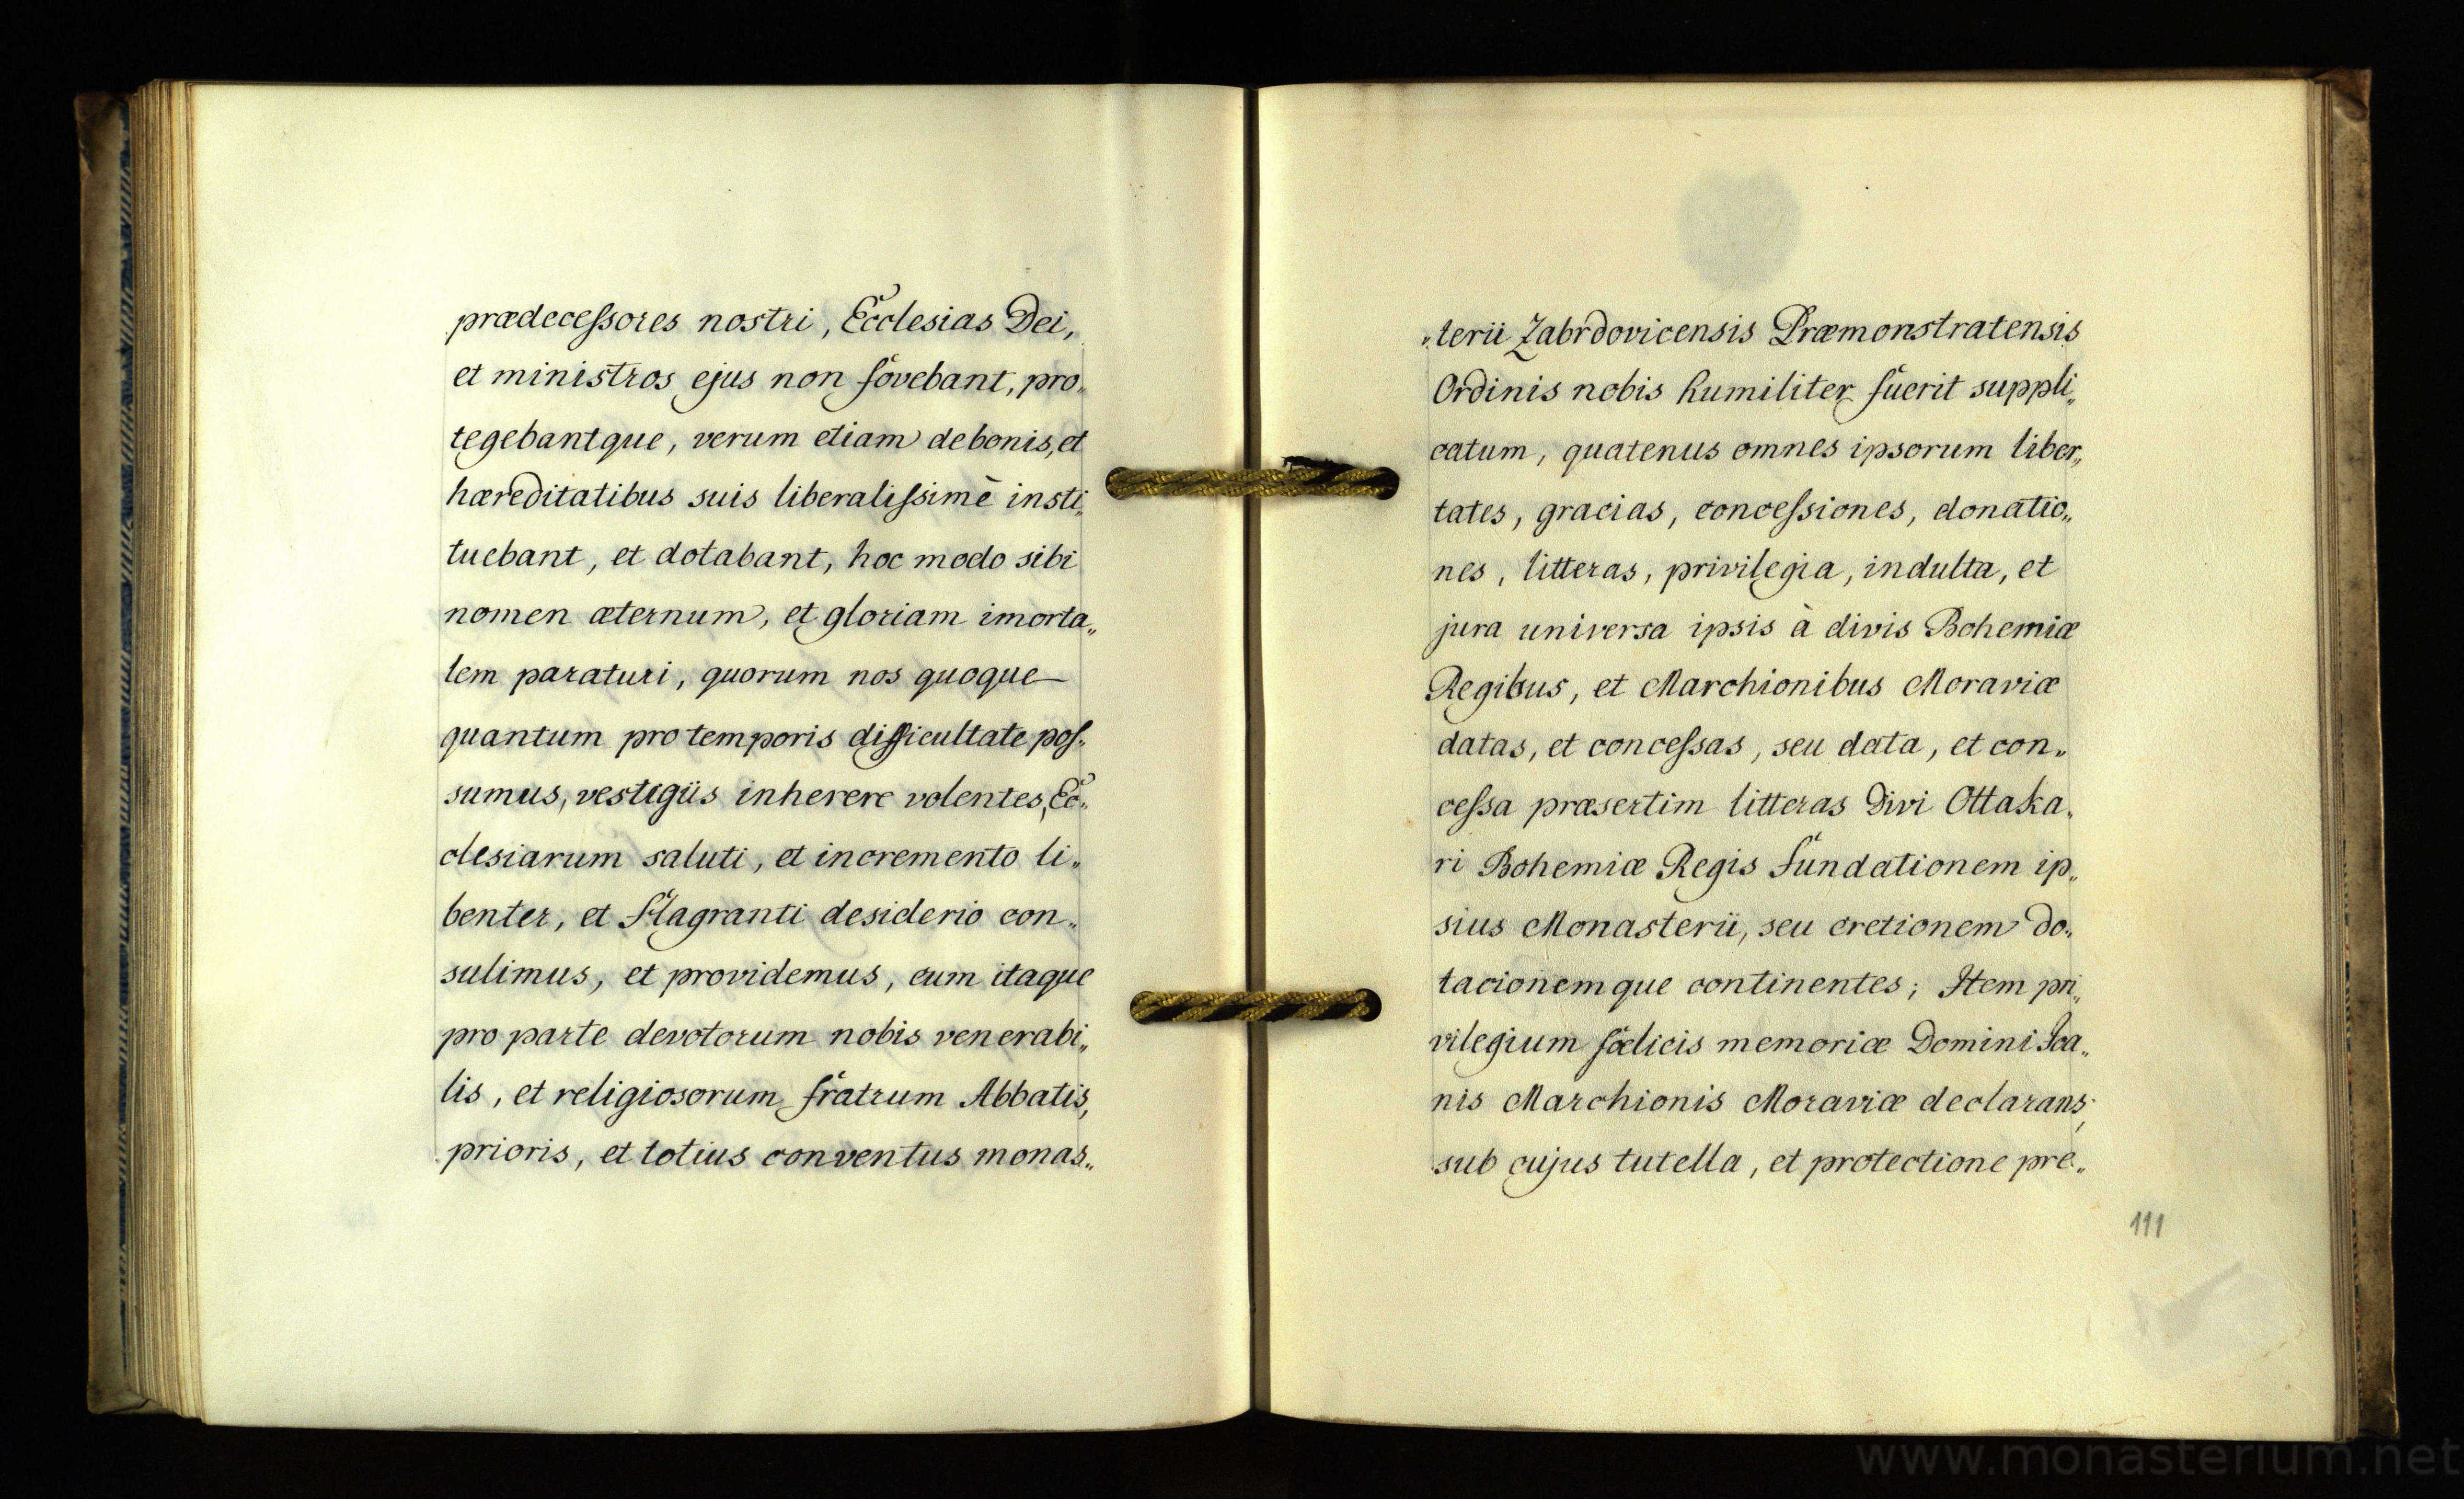 prædeceſsores nostri, Ecclesias Dei,
et ministros ejus non fovebant, pro„
tegebantque, verum etiam de bonis, et
hæreditatibus suis liberaliſsimè insti„
tuebant, et dotabant, hoc modo sibi
nomen æternum, et gloriam imorta„
lem paraturi, quorum nos quoque
quantum pro temporis difficultate poſ„
sumus, vestigiis inherere volentes, Ec„
clesiarum saluti, et incremento li„
benter, et flagranti desiderio con„
sulimus, et providemus, cum itaque
pro parte devotorum nobis venerabi„
lis, et religiosorum fratrum Abbatis,
prioris, et totius conventus monas„
„terii Zabrdovicensis Præmonstratensis
Ordinis nobis humiliter fuerit suppli„
catum, quatenus omnes ipsorum liber„
tates, gracias, conceſsiones, donatio„
nes, litteras, privilegia, indulta, et
jura universa ipsis à divis Bohemiæ
Regibus, et Marchionibus Moraviæ
datas, et conceſsas, seu data, et con„
ceſsa præsertim litteras Divi Ottaka„
ri Bohemiæ Regis fundationem ip„
sius Monasterii, seu eretionem do„
tacionemque continentes; Item pri„
vilegium fœlicis memoriæ Domini Ioa„
nis Marchionis Moraviæ declarans,
sub cujus tutella, et protectione pre„
111
www.monasterium.net